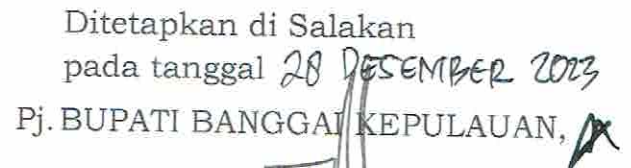 Ditetapkan di Salakan
pada tanggal 28 DESEMBER 2023
Pj. BUPATI BANGGAI KEPULAUAN,